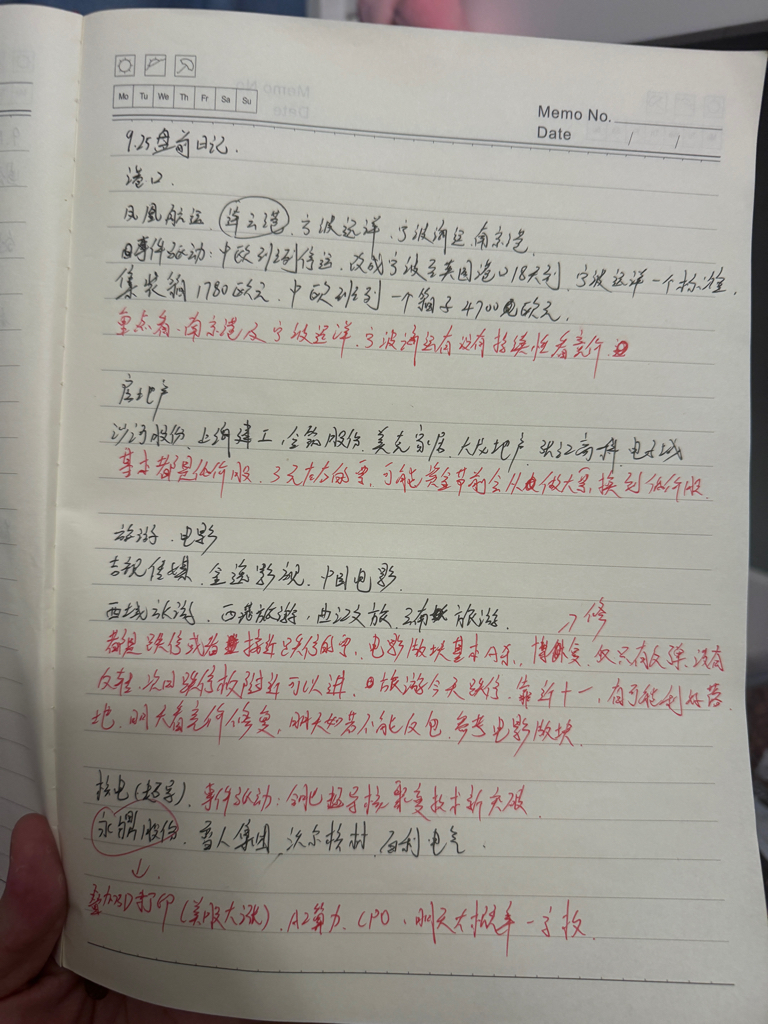 Mo Tu We Th Fr Sa Su
Memo No.
Date / /
9.25盘前日记.
港口.
凤凰航运. 连云港. 宁波远洋. 宁波海运. 南京港.
事件驱动: 中欧班列停运. 改成宁波至英国港口18天到. 宁波远洋一个标准.
集装箱1780欧元. 中欧班列一个箱子4700欧元.
重点看. 南京港及宁波远洋. 宁波海运有没有持续性看竞价.
房地产
沙河股份. 上海建工. 美克家居. 大龙地产 张江高科. 电子城
基本都是低价股. 3元左右的票. 可能黄金节前会从做大票. 换到低价股.
旅游. 电影
吉视传媒. 金逸影视. 中国电影.
西域旅游. 西藏旅游. 曲江文旅. 云南旅游.
修
都是跌停或者接近跌停的票. 电影版块基本A杀. 博修复. 只有反弹. 没有
反转. 次日跌停板附近可以进. 旅游今天跌停. 靠近十一. 有可能利好落
地. 明天看竞价修复. 明天如若不能反包. 参考电影版块.
核电(超导). 事件驱动: 合肥超导核聚变技术新突破.
永鼎股份. 雪人集团. 沃尔核材. 百利电气.
叠加3D打印(美股大涨). AI算力. CPO. 明天大概率一字板.